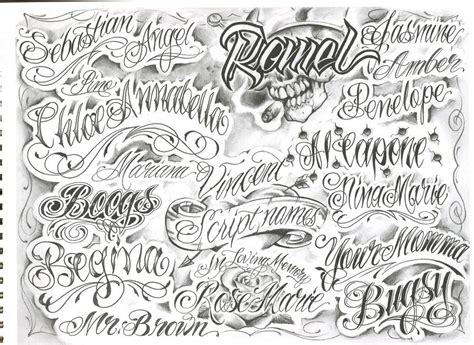 Sebastian
Angel
Ramel
Jasmine
Amber
Pino
Chloe
Annabella
Penelope
Mariana
Vincent
Al Capone
Nina Marie
Boogs
Script names
Regina
In Loving Memory
Rose Marie
Your Momma
Mr. Brown
Bugsy